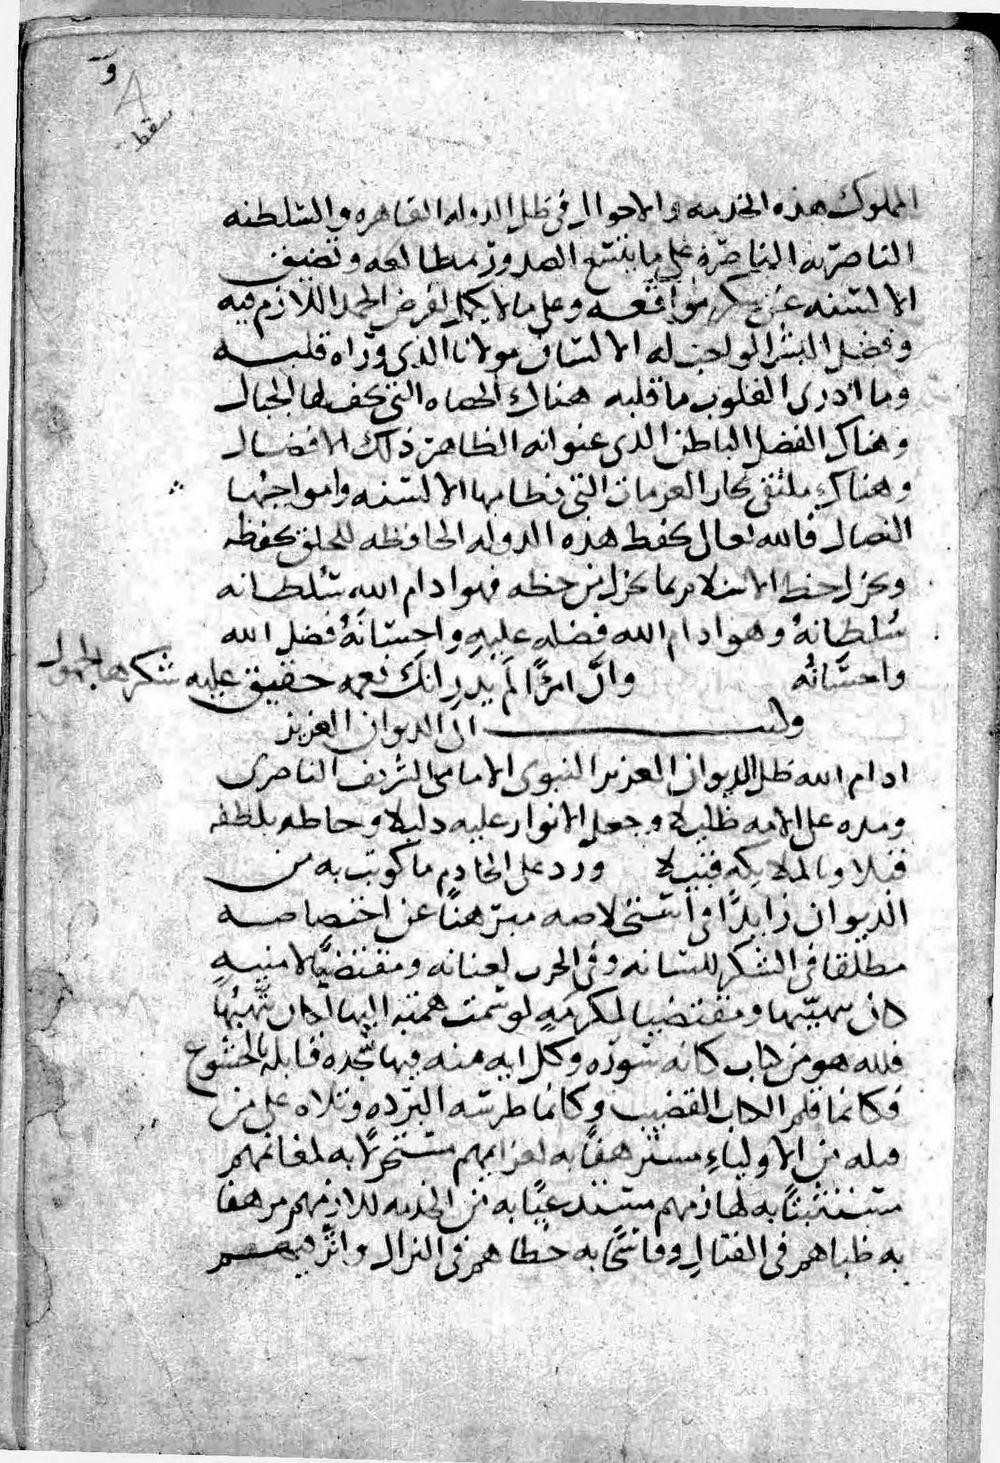 سقط
المملوك هذه الخدمه والاحوال في ظل الدوله القاهره والسلطنه
الناصريه الناصره على ما يتسع الصدور مطالعه وتضيق
الالسنه عن شكر مواقعه وعلى ما لا يكمل لفرض الحمد اللازم فيه
وفضل البشر الواجب له الا لسان مولانا الذي وراه قلبه
وما ادرى القلوب ما قلبه هناك الحصاه التي تخف لها الجبال
وهناك الفضل الباطن الذي عنوانه الظاهر ذلك الافضال
وهناك ملتقى بحار العزمات التي نظامها الالسنه وامواجها
النصال فالله تعالى يحفظ هذه الدوله الحافظه للخلق بحفظه
ويجزل حظ الاسلام بما يجزل من حظه فهو ادام الله سلطانه
سُلطانهُ وهو ادام الله فضله عليهِ واحسانهُ فضل الله
واحسانُه وانّ امرًا لم يدر انك نعمه حقيق عليه شكرها لجهول
وكتب الى الديوان العزيز
ادام الله ظل الديوان العزيز النبوى الامامى الشريف الناصرى
ومده على الامه ظليلا وجعل الانوار عليه دليلا وحاطه بلطفه
قبلا وبالملايكه قبيلا ورد على الخادم ما كوتب به من
الديوان زايدًا في استخلاصه مبرهنًا عن اختصاصه
مطلقا في الشكر للسانه وفي الحرب لعنانه ومقتضيًا لامنيهٍ
كان يتمناها ومقتضيا لمكرمهٍ لو سمت همته اليها لكان
فلله هو من كتاب كانه سوره وكل ايه منه فيها سجده قابله بالخشوع
فكانما قلم الكتاب القضيب وكانما طرسه البرده وتلاه على من
قبله من الاولياء مسترهفًا به لعزايمهم مستجزلًا به لمغانمهم
مستثبتًا به لهازمهم مستدعيًا به من الخدمه للازمهم مرهفا
به ظباهم في القتال وفاتحًا به خطاهم في النزال